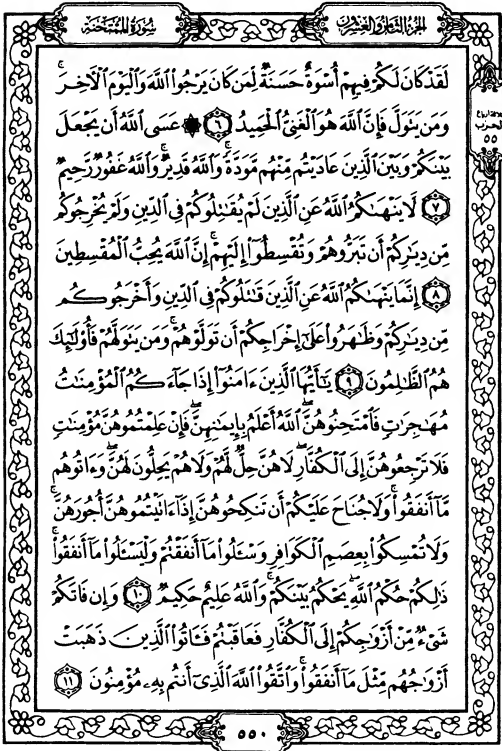 سُورَةُ المُمْتَحنَة
الجُزْءُ الثَّامِنُ وَالعِشْرُونَ
لَقَدْ كَانَ لَكُمْ فِيهِمْ أُسْوَةٌ حَسَنَةٌ لِّمَن كَانَ يَرْجُوا۟ ٱللَّهَ وَٱلْيَوْمَ ٱلْـَٔاخِرَ ۚ
وَمَن يَتَوَلَّ فَإِنَّ ٱللَّهَ هُوَ ٱلْغَنِىُّ ٱلْحَمِيدُ ٦ ۞ عَسَى ٱللَّهُ أَن يَجْعَلَ
بَيْنَكُمْ وَبَيْنَ ٱلَّذِينَ عَادَيْتُم مِّنْهُم مَّوَدَّةً ۚ وَٱللَّهُ قَدِيرٌ ۚ وَٱللَّهُ غَفُورٌ رَّحِيمٌ
٧ لَّا يَنْهَىٰكُمُ ٱللَّهُ عَنِ ٱلَّذِينَ لَمْ يُقَـٰتِلُوكُمْ فِى ٱلدِّينِ وَلَمْ يُخْرِجُوكُم
مِّن دِيَـٰرِكُمْ أَن تَبَرُّوهُمْ وَتُقْسِطُوٓا۟ إِلَيْهِمْ ۚ إِنَّ ٱللَّهَ يُحِبُّ ٱلْمُقْسِطِينَ
٨ إِنَّمَا يَنْهَىٰكُمُ ٱللَّهُ عَنِ ٱلَّذِينَ قَـٰتَلُوكُمْ فِى ٱلدِّينِ وَأَخْرَجُوكُم
مِّن دِيَـٰرِكُمْ وَظَـٰهَرُوا۟ عَلَىٰٓ إِخْرَاجِكُمْ أَن تَوَلَّوْهُمْ ۚ وَمَن يَتَوَلَّهُمْ فَأُو۟لَـٰٓئِكَ
هُمُ ٱلظَّـٰلِمُونَ ٩ يَـٰٓأَيُّهَا ٱلَّذِينَ ءَامَنُوٓا۟ إِذَا جَآءَكُمُ ٱلْمُؤْمِنَـٰتُ
مُهَـٰجِرَٰتٍ فَٱمْتَحِنُوهُنَّ ۖ ٱللَّهُ أَعْلَمُ بِإِيمَـٰنِهِنَّ ۖ فَإِنْ عَلِمْتُمُوهُنَّ مُؤْمِنَـٰتٍ
فَلَا تَرْجِعُوهُنَّ إِلَى ٱلْكُفَّارِ ۖ لَا هُنَّ حِلٌّ لَّهُمْ وَلَا هُمْ يَحِلُّونَ لَهُنَّ ۖ وَءَاتُوهُم
مَّآ أَنفَقُوا۟ ۚ وَلَا جُنَاحَ عَلَيْكُمْ أَن تَنكِحُوهُنَّ إِذَآ ءَاتَيْتُمُوهُنَّ أُجُورَهُنَّ ۚ
وَلَا تُمْسِكُوا۟ بِعِصَمِ ٱلْكَوَافِرِ وَسْـَٔلُوا۟ مَآ أَنفَقْتُمْ وَلْيَسْـَٔلُوا۟ مَآ أَنفَقُوا۟ ۚ
ذَٰلِكُمْ حُكْمُ ٱللَّهِ ۖ يَحْكُمُ بَيْنَكُمْ ۚ وَٱللَّهُ عَلِيمٌ حَكِيمٌ ١٠ وَإِن فَاتَكُمْ
شَىْءٌ مِّنْ أَزْوَٰجِكُمْ إِلَى ٱلْكُفَّارِ فَعَاقَبْتُمْ فَـَٔاتُوا۟ ٱلَّذِينَ ذَهَبَتْ
أَزْوَٰجُهُم مِّثْلَ مَآ أَنفَقُوا۟ ۚ وَٱتَّقُوا۟ ٱللَّهَ ٱلَّذِىٓ أَنتُم بِهِۦ مُؤْمِنُونَ ١١
الحزب
٥٥
٥٥٠